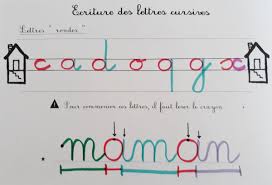 Ecriture des lettres cursives
Lettres "rondes"
c a d o q g x
Pour commencer ces lettres, il faut lever le crayon
maman